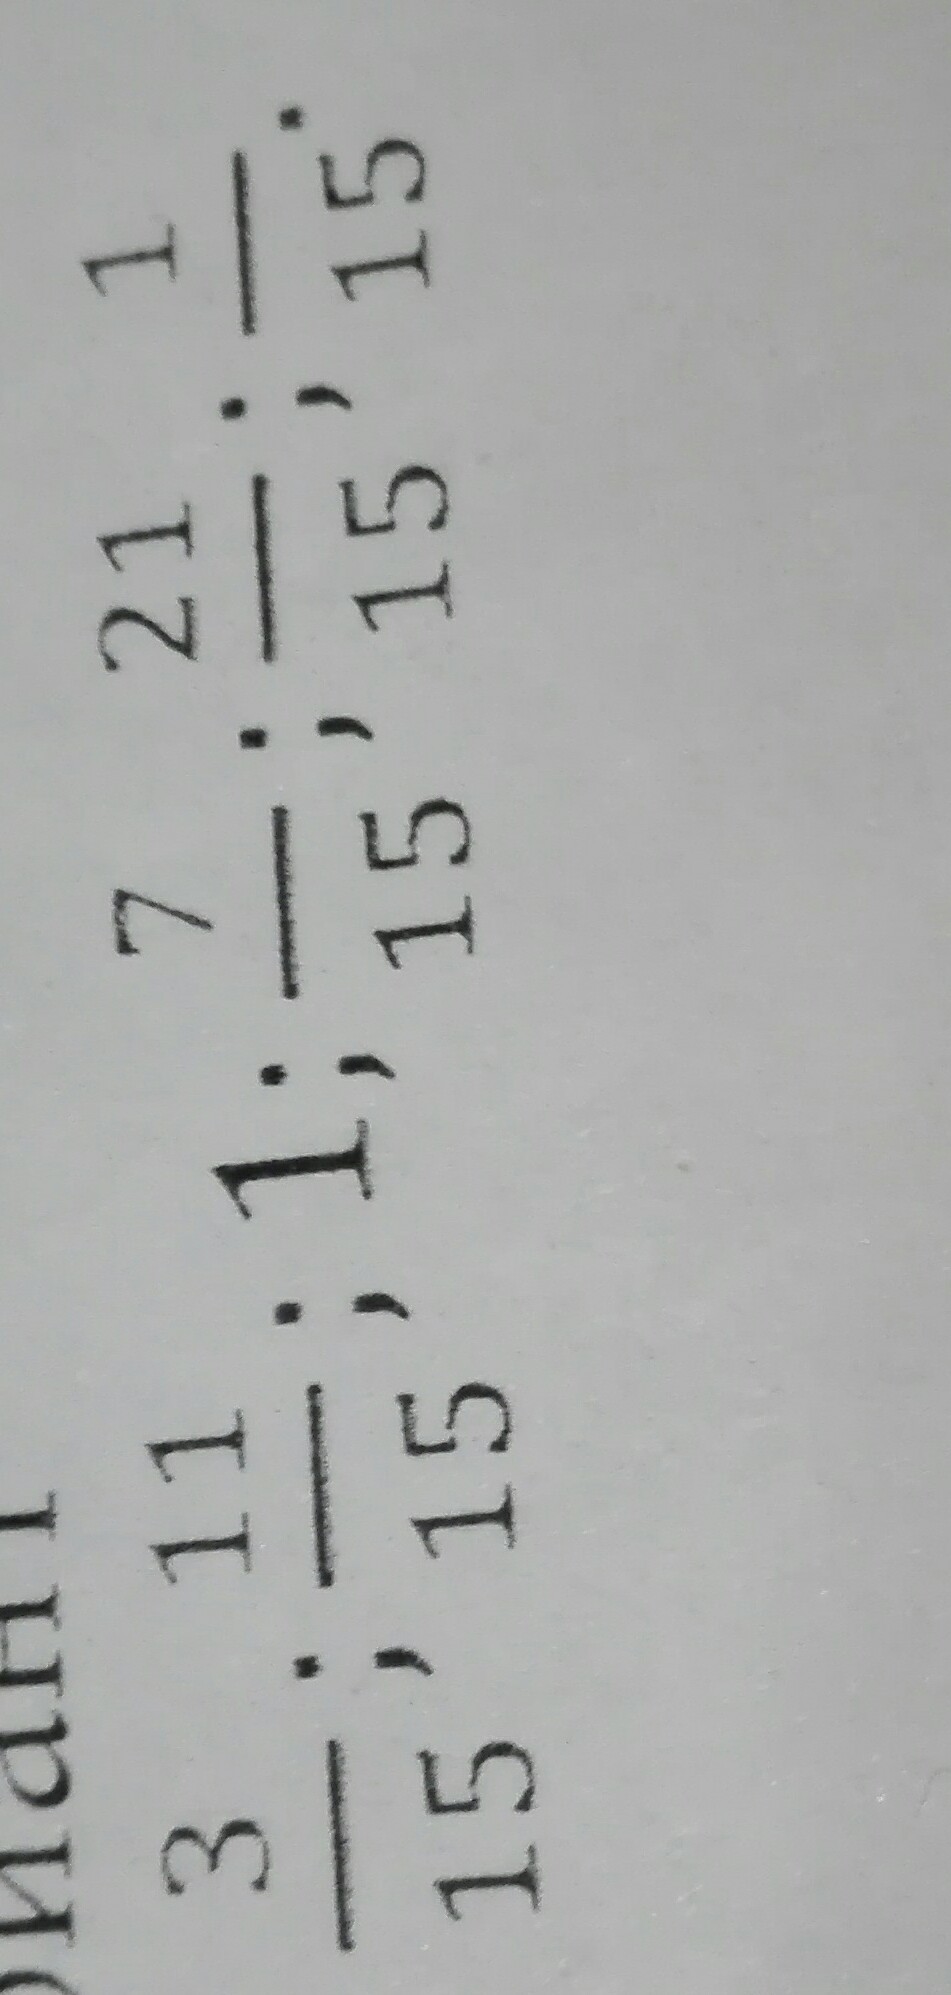 3/15; 11/15; 1; 7/15; 21/15; 1/15.